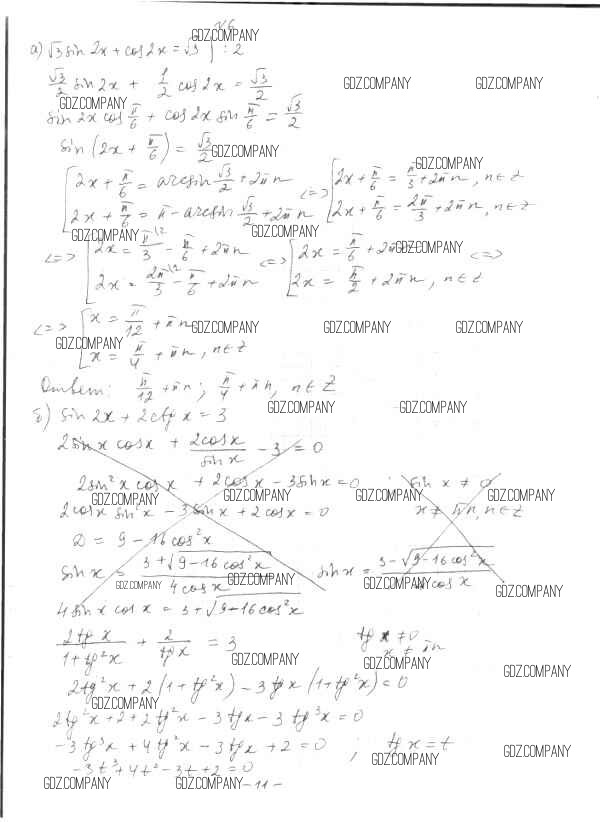 К6
GDZ.COMPANY
а) √3 sin 2x + cos 2x = √3 | : 2
√3/2 sin 2x + 1/2 cos 2x = √3/2
GDZ.COMPANY GDZ.COMPANY GDZ.COMPANY
sin 2x cos π/6 + cos 2x sin π/6 = √3/2
sin (2x + π/6) = √3/2
GDZ.COMPANY GDZ.COMPANY
[2x + π/6 = arcsin √3/2 + 2πn <=> [2x + π/6 = π/3 + 2πn, n∈Z
2x + π/6 = π - arcsin √3/2 + 2πn 2x + π/6 = 2π/3 + 2πn, n∈Z
GDZ.COMPANY GDZ.COMPANY GDZ.COMPANY
<=> [2x = π/3 - π/6 + 2πn <=> [2x = π/6 + 2πn <=>
2x = 2π/3 - π/6 + 2πn 2x = π/2 + 2πn, n∈Z
<=> [x = π/12 + πn
GDZ.COMPANY GDZ.COMPANY GDZ.COMPANY
GDZ.COMPANY
x = π/4 + πn, n∈Z
Ответ: π/12 + πn; π/4 + πn, n∈Z
GDZ.COMPANY GDZ.COMPANY
б) sin 2x + 2ctg x = 3
2 sin x cos x + 2cos x/sin x - 3 = 0
2 sin² x cos x + 2cos x - 3 sin x = 0 ; sin x ≠ 0
GDZ.COMPANY GDZ.COMPANY GDZ.COMPANY GDZ.COMPANY
2cos x sin² x - 3 sin x + 2 cos x = 0 x ≠ πn, n∈Z
D = 9 - 16 cos² x
sin x = 3 + √9 - 16 cos² x/4 cos x sin x = 3 - √9 - 16 cos² x/4 cos x
GDZ.COMPANY GDZ.COMPANY GDZ.COMPANY GDZ.COMPANY
4 sin x cos x = 3 + √9 - 16 cos² x
2 tg x/1 + tg² x + 2/tg x = 3 tg x ≠ 0
x ≠ πn
GDZ.COMPANY GDZ.COMPANY GDZ.COMPANY
2tg² x + 2(1 + tg² x) - 3 tg x (1 + tg² x) = 0
GDZ.COMPANY
2tg² x + 2 + 2 tg² x - 3 tg x - 3 tg³ x = 0
-3 tg³ x + 4 tg² x - 3 tg x + 2 = 0 ; tg x = t
GDZ.COMPANY GDZ.COMPANY
-3t³ + 4t² - 3t + 2 = 0
GDZ.COMPANY GDZ.COMPANY GDZ.COMPANY
- 11 -